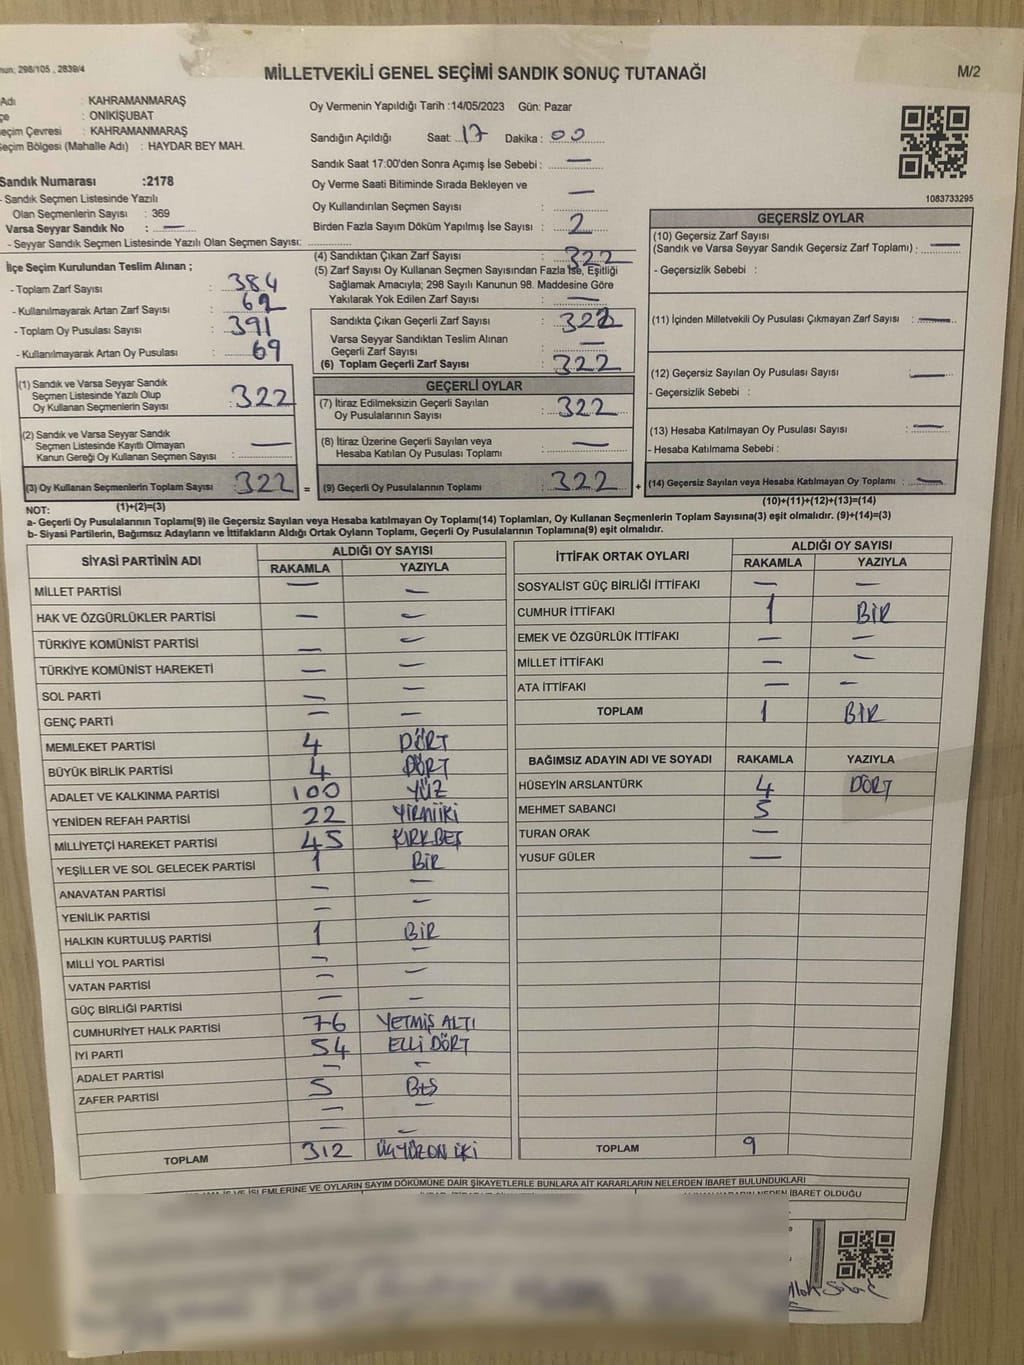 nun; 298/105 , 2839/4
MİLLETVEKİLİ GENEL SEÇİMİ SANDIK SONUÇ TUTANAĞI
M/2
Adı : KAHRAMANMARAŞ
çe : ONİKİŞUBAT
eçim Çevresi : KAHRAMANMARAŞ
eçim Bölgesi (Mahalle Adı) : HAYDAR BEY MAH.
Sandık Numarası :2178
- Sandık Seçmen Listesinde Yazılı
Olan Seçmenlerin Sayısı : 369
Varsa Seyyar Sandık No : —
- Seyyar Sandık Seçmen Listesinde Yazılı Olan Seçmen Sayısı:
Oy Vermenin Yapıldığı Tarih :14/05/2023 Gün: Pazar
Sandığın Açıldığı Saat: 17 Dakika : 00
Sandık Saat 17:00'den Sonra Açımış İse Sebebi : —
Oy Verme Saati Bitiminde Sırada Bekleyen ve
Oy Kullandırılan Seçmen Sayısı : —
Birden Fazla Sayım Döküm Yapılmış İse Sayısı : 2
1083733295
İlçe Seçim Kurulundan Teslim Alınan ;
- Toplam Zarf Sayısı : 384
- Kullanılmayarak Artan Zarf Sayısı : 62
- Toplam Oy Pusulası Sayısı : 391
- Kullanılmayarak Artan Oy Pusulası : 69
(1) Sandık ve Varsa Seyyar Sandık
Seçmen Listesinde Yazılı Olup
Oy Kullanan Seçmenlerin Sayısı : 322
(2) Sandık ve Varsa Seyyar Sandık
Seçmen Listesinde Kayıtlı Olmayan
Kanun Gereği Oy Kullanan Seçmen Sayısı : —
(3) Oy Kullanan Seçmenlerin Toplam Sayısı : 322 =
(1)+(2)=(3)
(4) Sandıktan Çıkan Zarf Sayısı : 322
(5) Zarf Sayısı Oy Kullanan Seçmen Sayısından Fazla İse, Eşitliği
Sağlamak Amacıyla; 298 Sayılı Kanunun 98. Maddesine Göre
Yakılarak Yok Edilen Zarf Sayısı : —
Sandıkta Çıkan Geçerli Zarf Sayısı : 322
Varsa Seyyar Sandıktan Teslim Alınan
Geçerli Zarf Sayısı : —
(6) Toplam Geçerli Zarf Sayısı : 322
GEÇERLİ OYLAR
(7) İtiraz Edilmeksizin Geçerli Sayılan
Oy Pusulalarının Sayısı : 322
(8) İtiraz Üzerine Geçerli Sayılan veya
Hesaba Katılan Oy Pusulası Toplamı : —
(9) Geçerli Oy Pusulalarının Toplamı : 322 +
GEÇERSİZ OYLAR
(10) Geçersiz Zarf Sayısı
(Sandık ve Varsa Seyyar Sandık Geçersiz Zarf Toplamı) : —
- Geçersizlik Sebebi :
(11) İçinden Milletvekili Oy Pusulası Çıkmayan Zarf Sayısı : —
(12) Geçersiz Sayılan Oy Pusulası Sayısı : —
- Geçersizlik Sebebi :
(13) Hesaba Katılmayan Oy Pusulası Sayısı : —
- Hesaba Katılmama Sebebi :
(14) Geçersiz Sayılan veya Hesaba Katılmayan Oy Toplamı : —
(10)+(11)+(12)+(13)=(14)
NOT:
a- Geçerli Oy Pusulalarının Toplamı(9) ile Geçersiz Sayılan veya Hesaba katılmayan Oy Toplamı(14) Toplamları, Oy Kullanan Seçmenlerin Toplam Sayısına(3) eşit olmalıdır. (9)+(14)=(3)
b- Siyasi Partilerin, Bağımsız Adayların ve İttifakların Aldığı Ortak Oyların Toplamı, Geçerli Oy Pusulalarının Toplamına(9) eşit olmalıdır.
SİYASİ PARTİNİN ADI ALDIĞI OY SAYISI
RAKAMLA YAZIYLA
MİLLET PARTİSİ — —
HAK VE ÖZGÜRLÜKLER PARTİSİ — —
TÜRKİYE KOMÜNİST PARTİSİ — —
TÜRKİYE KOMÜNİST HAREKETİ — —
SOL PARTİ — —
GENÇ PARTİ — —
MEMLEKET PARTİSİ 4 DÖRT
BÜYÜK BİRLİK PARTİSİ 4 DÖRT
ADALET VE KALKINMA PARTİSİ 100 YÜZ
YENİDEN REFAH PARTİSİ 22 YİRMİİKİ
MİLLİYETÇİ HAREKET PARTİSİ 45 KIRKBEŞ
YEŞİLLER VE SOL GELECEK PARTİSİ 1 BİR
ANAVATAN PARTİSİ — —
YENİLİK PARTİSİ — —
HALKIN KURTULUŞ PARTİSİ 1 BİR
MİLLİ YOL PARTİSİ — —
VATAN PARTİSİ — —
GÜÇ BİRLİĞİ PARTİSİ — —
CUMHURİYET HALK PARTİSİ 76 YETMİŞ ALTI
İYİ PARTİ 54 ELLİ DÖRT
ADALET PARTİSİ — —
ZAFER PARTİSİ 5 BEŞ
— —
— —
TOPLAM 312 ÜÇYÜZON İKİ
İTTİFAK ORTAK OYLARI ALDIĞI OY SAYISI
RAKAMLA YAZIYLA
SOSYALİST GÜÇ BİRLİĞİ İTTİFAKI — —
CUMHUR İTTİFAKI 1 BİR
EMEK VE ÖZGÜRLÜK İTTİFAKI — —
MİLLET İTTİFAKI — —
ATA İTTİFAKI — —
TOPLAM 1 BİR
BAĞIMSIZ ADAYIN ADI VE SOYADI RAKAMLA YAZIYLA
HÜSEYİN ARSLANTÜRK 4 DÖRT
MEHMET SABANCI 5
TURAN ORAK —
YUSUF GÜLER —
TOPLAM 9
İŞLEMLERİNE VE OYLARIN SAYIM DÖKÜMÜNE DAİR ŞİKAYETLERLE BUNLARA AİT KARARLARIN NELERDEN İBARET BULUNDUKLARI
NEDEN İBARET OLDUĞU